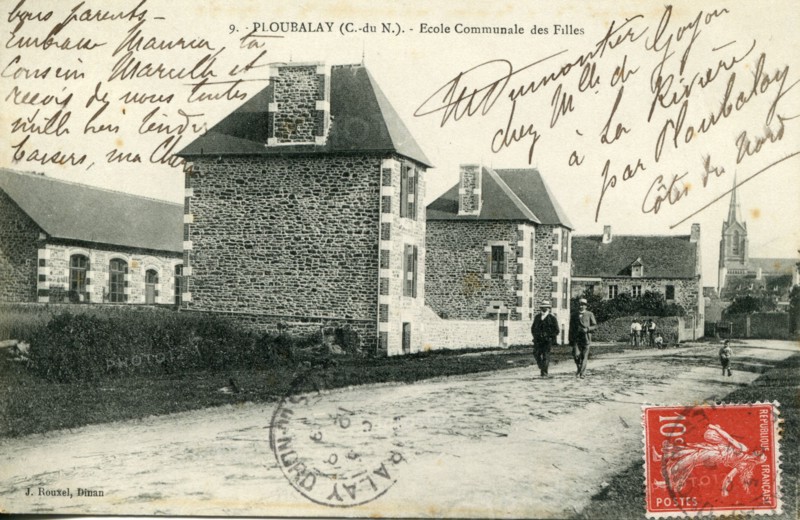 bons parents –
Embrasse Maurice, ta
Cousin Marcelle et
reçois de nous toutes
mille bien tendres
baisers, ma
9. - PLOUBALAY (C.-du N.). - Ecole Communale des Filles
Mr Dumontier
chez Mlle de Goyon
à la Rivière
par Ploubalay
Côtes du Nord
PHOTO
PHOTO
PLOUBALAY
DU NORD
J. Rouxel, Dinan
10c
POSTES
REPUBLIQUE FRANÇAISE